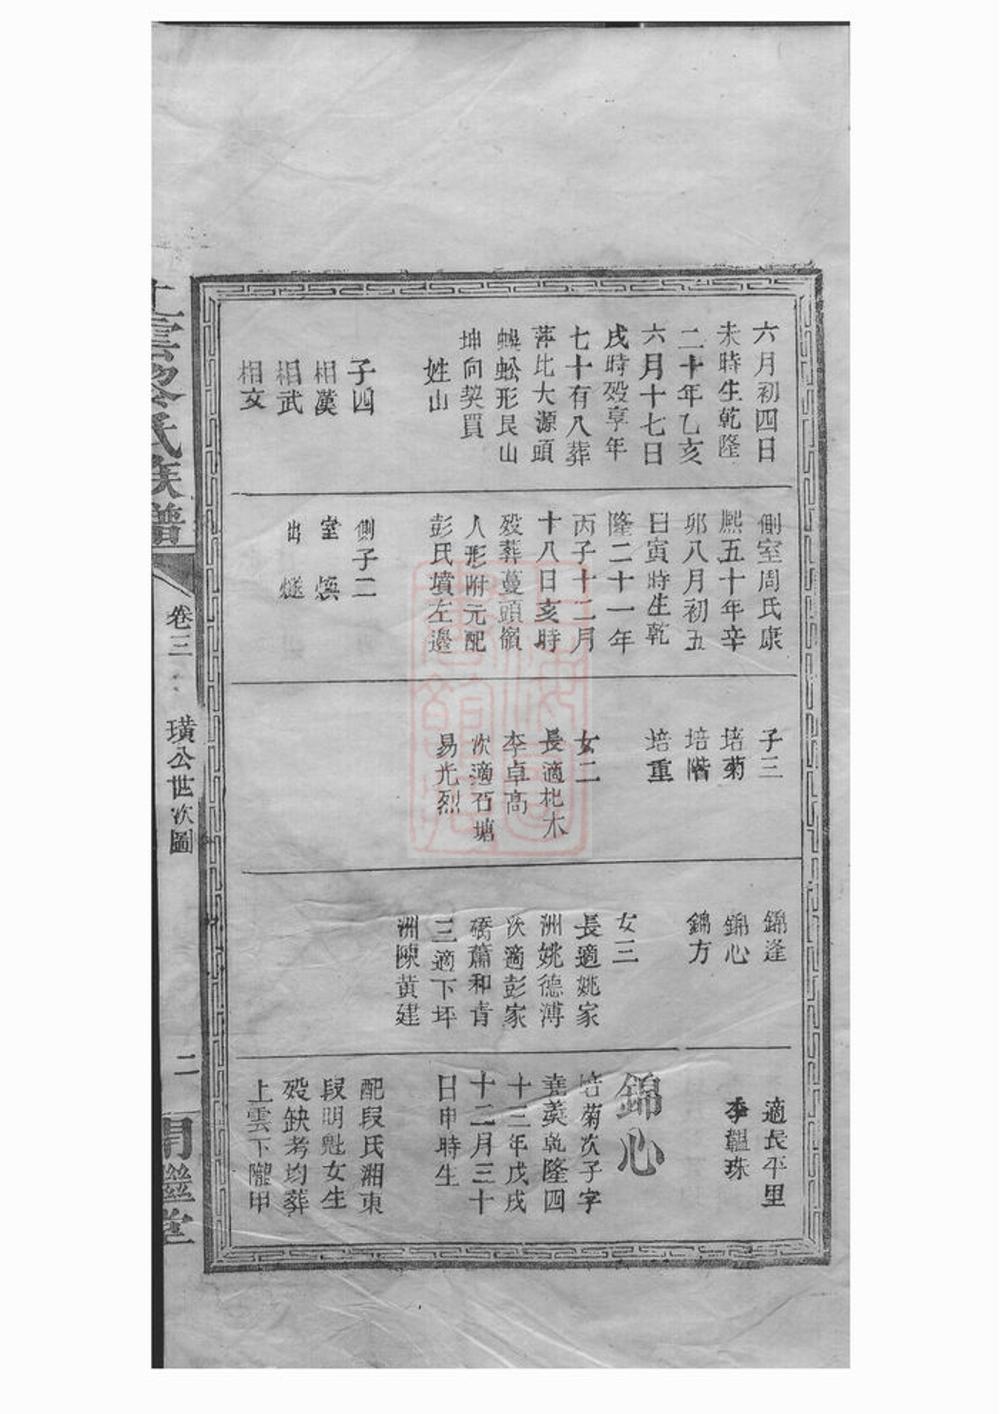 六月初四日
未時生乾隆
二十年乙亥
六月十七日
戌時歿享年
七十有八葬
萍北大源頭
蜈蚣形艮山
坤向契買
姓山
子四
相漢
相武
相文
側室周氏康
熙五十年辛
卯八月初五
日寅時生乾
隆二十一年
丙子十二月
十八日亥時
歿葬蔓頭嶺
人形附元配
彭氏墳左邊
側子二
室 煥
出 燧
子三
培菊
培階
培重
女二
長適杞木
李卓高
次適石塘
易光烈
錦逢
錦心
錦方
女三
長適姚家
洲姚德溥
次適彭家
橋蕭和青
三適下坪
洲陳黃建
適長平里
李韞珠
錦心
培菊次子字
堯羹乾隆四
十三年戊戌
十二月三十
日申時生
配段氏湘東
段明魁女生
歿缺考均葬
上雲下隴甲
上雲黎氏族譜
卷三
璜公世次圖
二
開繼堂